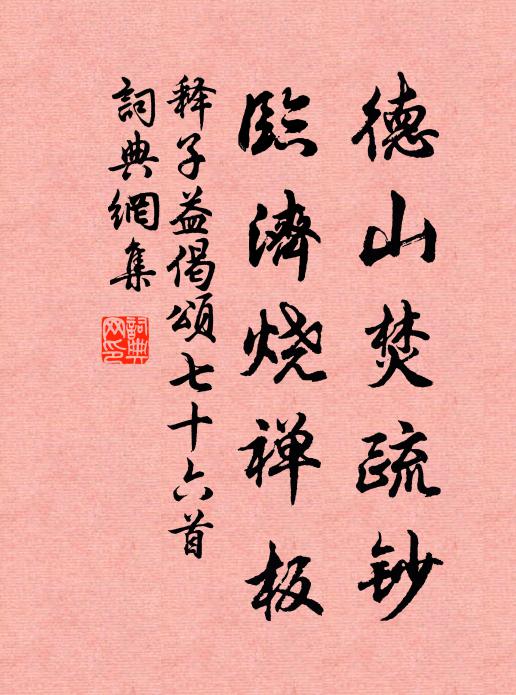 德山焚疏鈔
臨濟烧禅板
释子益偈頌七十六首
詞典網集
詞典網印